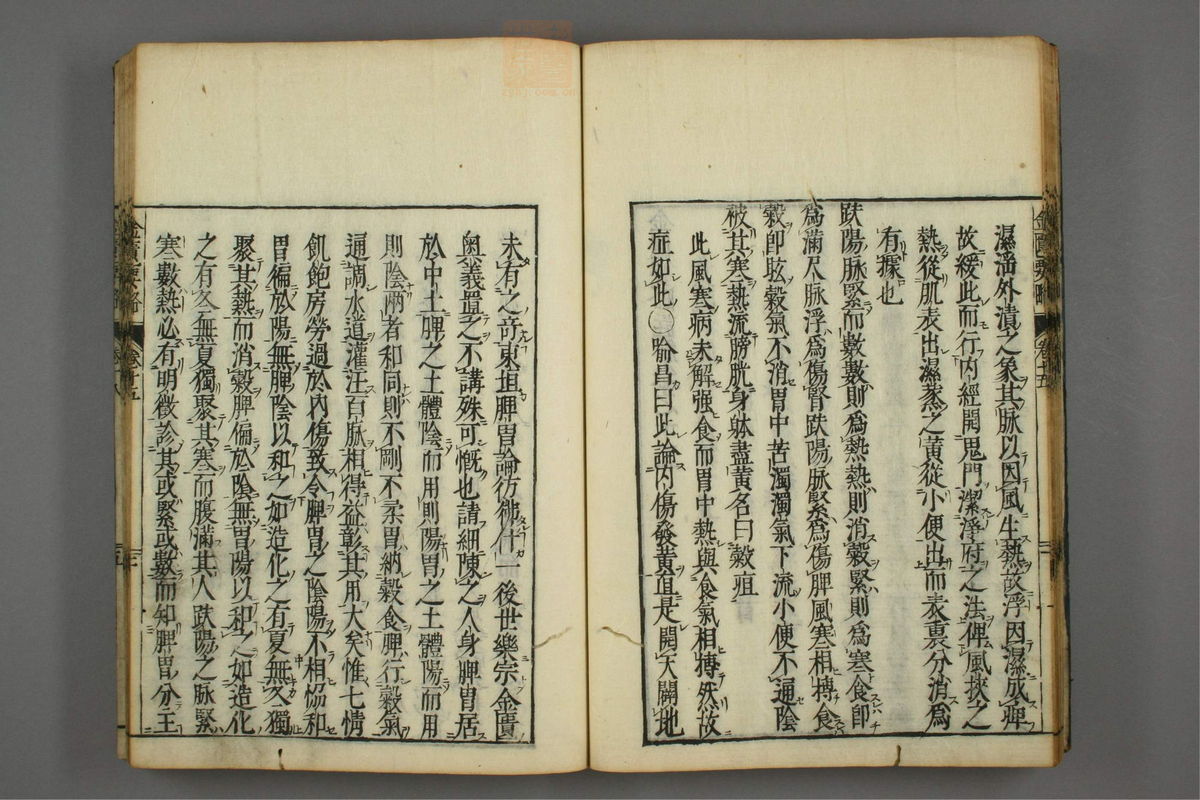 濕滛外漬之象其脉以因風生熱故浮因濕成痺
故緩此而行内經開鬼門潔淨府之法俾風挾之
熱從肌表出濕蒸之黃從小便出而表裏分消爲
有據也
趺陽脉緊而數數則爲熱熱則消穀緊則爲寒食即
爲滿尺脉浮爲傷腎趺陽脉緊爲傷脾風寒相搏食
穀即眩穀氣不消胃中苦濁濁氣下流小便不通陰
被其寒熱流膀胱身躰盡黃名曰穀疸
此風寒病未解强食而胃中熱與食氣相搏然故
症如此〇喻昌曰此論内傷發黃直是開天闢地
未有之竒東垣脾胃論彷彿什一後世樂宗金匱
奥義置之不講殊可慨也請細陳之人身脾胃居
於中土脾之土體陰而用則陽胃之土體陽而用
則陰兩者和同則不剛不柔胃納穀食脾行穀氣
通調水道灌汪百脉相得益彰其用大矣惟七情
飢飽房勞過於内傷致令脾胃之陰陽不相恊和
胃偏於陽無脾陰以和之如造化之有夏無冬獨
聚其熱而消穀脾偏於陰無胃陽以和之如造化
之有冬無夏獨聚其寒而腹滿其人趺陽之脉緊
寒數熱必有明徵診其或緊或數而知脾胃分主
金匱要略
卷十五